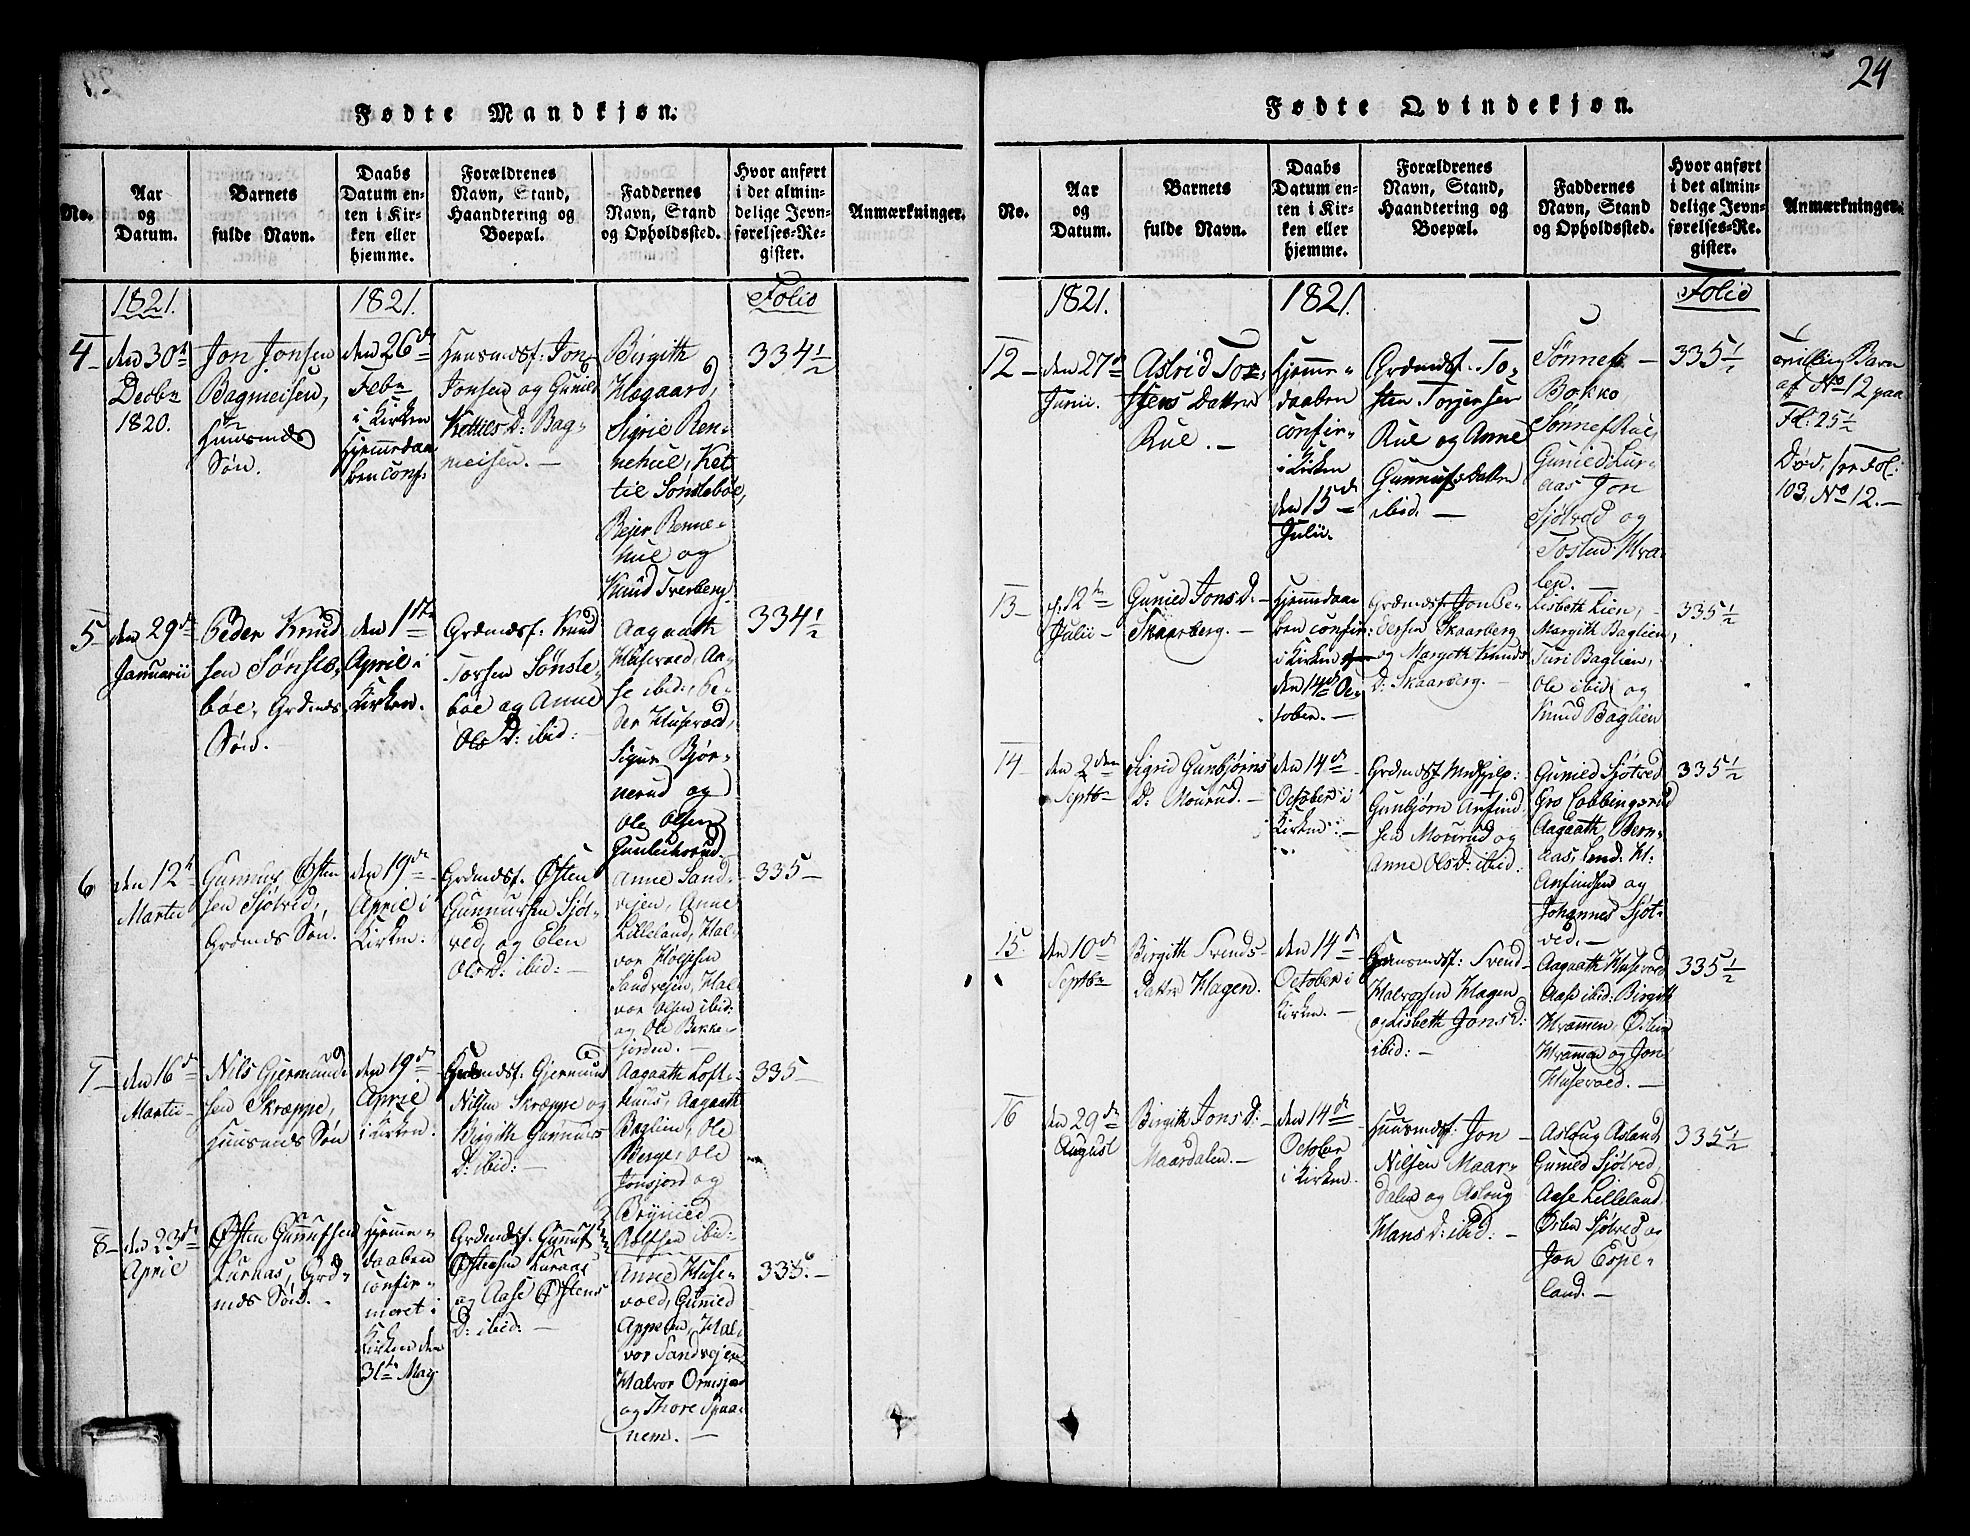 24
Fødte Mandkjøn.
No.
Aar
og
Datum.
Barnets
fulde Navn.
Daabs
Datum en-
ten i Kir-
ken eller
hjemme.
Forældrenes
Navn, Stand,
Haandtering og
Boepæl.
Faddernes
Navn, Stand
og Opholdssted.
Hvor anført
i det almin-
delige Jevn-
førelses-Re-
gister.
Anmærkninger.
1821.
1821.
Folio
4
den 30te
Decbr
1820.
Jon Jonsen
Bagmeisen,
Huusmds
Søn.
den 26de
Febr
i Kirken
Hjemmedaa
ben conf.
Huusmdsf: Jon
Jonsen og Gunild
Kettils D: Bag-
meisen. —
Birgith
Høgaard,
Sigrie Ren-
nehue, Ket
til Sønslebøe,
Bejer Renne-
hue og
Knud Tverberg.
334½
5
den 29de
Januarii
Peder Knud
sen Sønsle-
bøe, Grdmds
Søn. —
den 1ste
April i
Kirken.
Grdmdsf: Knud
Torsen Sønsle-
bøe og Anne
Ols D: ibid: —
Aagaath
Husevold, Aa-
se ibid:, Pe-
der Husevold,
Sigur Bjør-
nerud og
Ole Olsen
334½
6
den 12te
Martii
Gunnuf Østen
sen Sjøtved,
Grdmds Søn.
den 19de
April i
Kirken.
Grdmdsf. Østen
Gunnufsen Sjøt-
ved, og Elen
Olsd: ibid: —
Anne Sand-
vejen, Anne
Lilleland, Hal-
vor
Sandvejen, Hal-
vor Olsen ibid:
og Ole Bekke-
jorden. —
335 —
7
den 16de
Martii
Nils Gjermund
sen Skræppe,
Huusmds Søn
den 19de
April
i Kirken.
Huusmdsf. Gjermund
Nilsen Skræppe og
Birgith Gunnufs
D: ibid: —
Aagaath Loft-
huus, Aagaath
Baglien, Ole
Berge, Ole
Jonsjord og
Brynild
ibid:
335 —
8
den 23de
April
Østen Gunnufsen
Luraas, Grd-
mds Søn. —
Hjemme-
daaben
confir-
meret i
Kirken den
31te May
Grdmdsf. Gunnuf
Østensen Luraas
og Aase Østens
D: ibid: —
Anne Huse-
vold, Gunild
Hal-
vor Sandvejen
Halvor
og Thore Spaa-
nem. —
335. —
Fødte Qvindekjøn.
No.
Aar
og
Datum.
Barnets
fulde Navn.
Daabs
Datum en-
ten i Kir-
ken eller
hjemme.
Forældrenes
Navn, Stand,
Haandtering og
Boepæl.
Faddernes
Navn, Stand
og Opholdssted.
Hvor anført
i det almin-
delige Jevn-
førelses-Re-
gister.
Anmærkninger.
1821.
1821.
Folio
12 —
den 27de
Junii.
Astrid Tor-
stens Datter
Rue. —
Hjemme-
daaben
confir-
i Kirken
den 15de
Julii.
Grdmdsf. To-
sten Torjersen
Rue og Anne
Gunnufs Datter
ibid. —
Sønnef —
Bokko,
Sønnef Rue,
Gunild Lur-
aas Jon
Sjøtved og
Tosten Hva-
len. —
335½
Tvilling Barn
af No 12 paa
Fl: 25½
Død, see Fol:
103. No 12. —
13 —
d: 12te
Julii —
Gunild Jons D: —
Skaarberg. —
Hjemmedaa
ben confir:
i Kirken
den 14de Oc-
tober. —
Grdmdsf. Jon Pe-
dersen Skaarberg
og Margith Knuds
D: Skaarberg. —
Lisbeth Lien, —
Margith Baglien,
Turi Baglien,
Ole ibid og
Knud Baglien
335½
14
den 2den
Septbr
Sigrid Gunbjørns
D: Mourud. —
den 14de
October i
Kirken: —
Grdmdsf
Gunbjørn Anfind
sen Mourud og
Anne Olsd: ibid:
Gunild Sjøtved
Gro Cobbingsrud
Aagaath Bern-
aas, H:
Anfindsen og
Johannes Sjøt-
ved. —
335½
15
den 10de
Septbr
Birgith Svends-
Datter Hagen.
den 14de
October i
Kirken. —
Huusmdsf: Svend
Halvorsen Hagen
og Lisbeth Jons D:
ibid: —
Aagaath Husevold
Aase ibid: Birgith
og Jon
Husevold. —
335½
16
den 29de
August
Birgith Jons D: —
Maardalen. —
den 14de
October
i Kirken.
Huusmdsf: Jon —
Nilsen Maar-
dalen og Aslaug
Hans D: ibid: —
Aslaug Asland,
Gunild Sjøtved,
Aase Lilleland
Østen Sjøtved og
Jon Espe-
land. —
335½